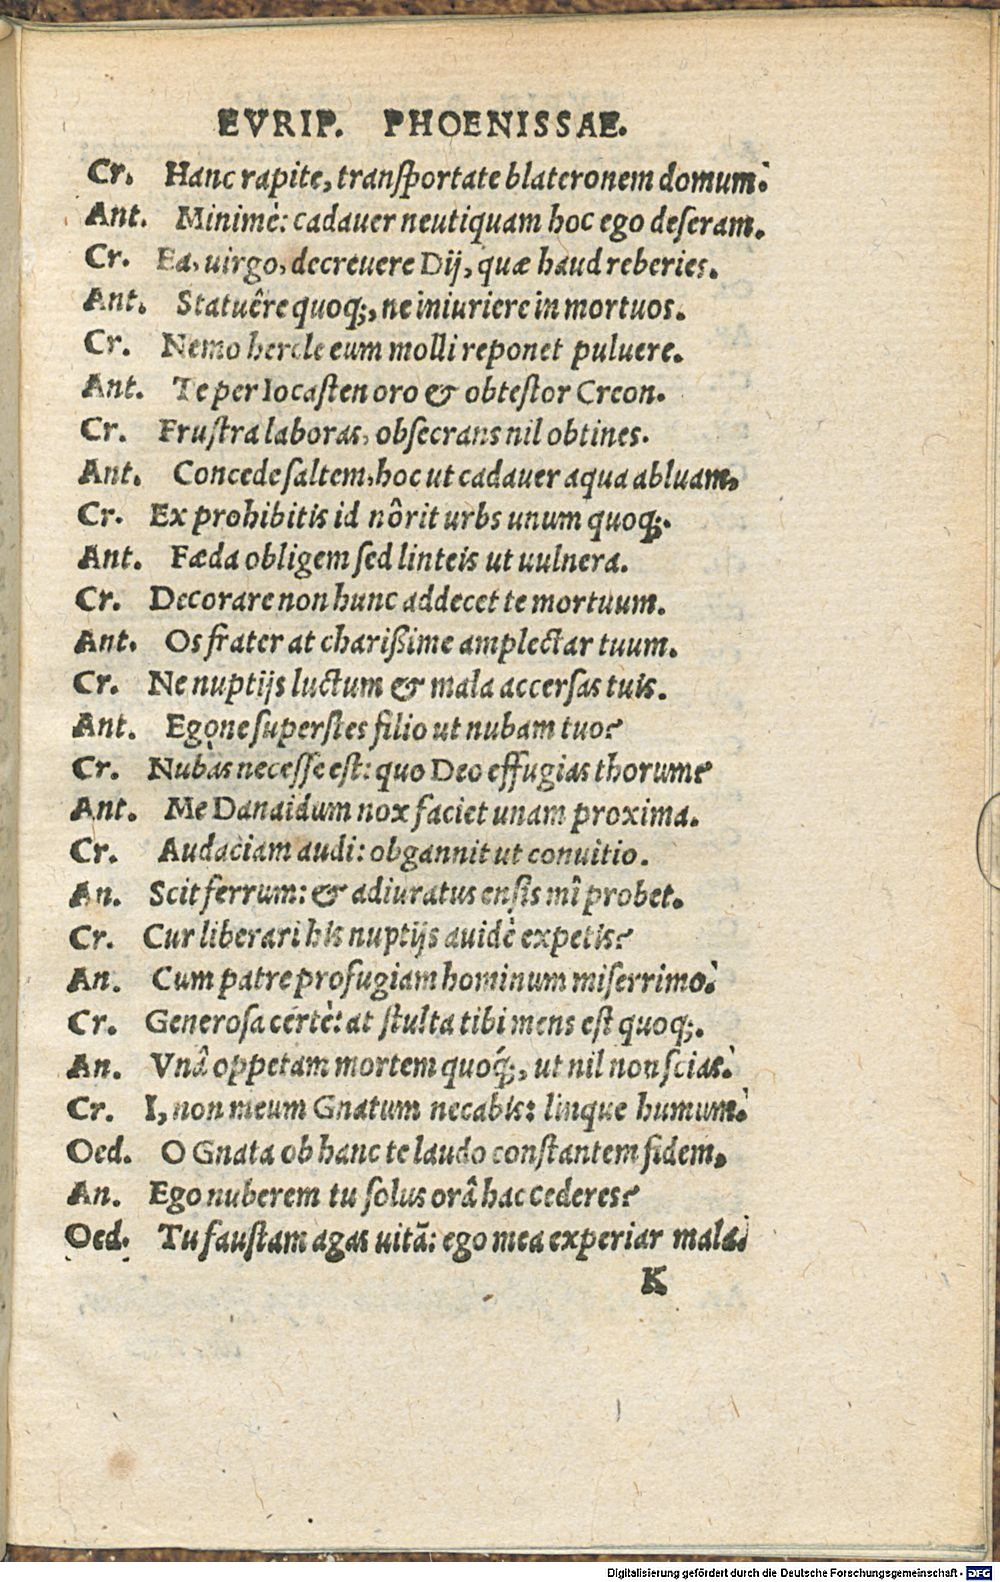 EVRIP. PHOENISSAE.
Cr. Hanc rapite, transportate blateronem domum.
Ant. Minimè: cadauer neutiquam hoc ego deseram.
Cr. Ea, uirgo, decreuere Dij, quæ haud reberies.
Ant. Statuêre quoq;, ne iniuriere in mortuos.
Cr. Nemo hercle eum molli reponet puluere.
Ant. Te per Iocasten oro & obtestor Creon.
Cr. Frustra laboras, obsecrans nil obtines.
Ant. Concede saltem, hoc ut cadauer aqua abluam.
Cr. Ex prohibitis id nôrit urbs unum quoq;.
Ant. Fæda obligem sed linteis ut uulnera.
Cr. Decorare non hunc addecet te mortuum.
Ant. Os frater at charißime amplectar tuum.
Cr. Ne nuptijs luctum & mala accersas tuis.
Ant. Egone superstes filio ut nubam tuo?
Cr. Nubas necesse est: quo Deo effugias thorum?
Ant. Me Danaidum nox faciet unam proxima.
Cr. Audaciam audi: obgannit ut conuitio.
An. Scit ferrum: & adiuratus ensis mî probet.
Cr. Cur liberari his nuptijs auidè expetis?
An. Cum patre profugiam hominum miserrimo.
Cr. Generosa certè: at stulta tibi mens est quoq;.
An. Vnâ oppetam mortem quoq́;, ut nil non scias.
Cr. I, non meum Gnatum necabis: linque humum.
Oed. O Gnata ob hanc te laudo constantem fidem.
An. Ego nuberem tu solus orâ hac cederes?
Oed. Tu faustam agas uitã: ego mea experiar mala.
K
Digitalisierung gefördert durch die Deutsche Forschungsgemeinschaft - DFG